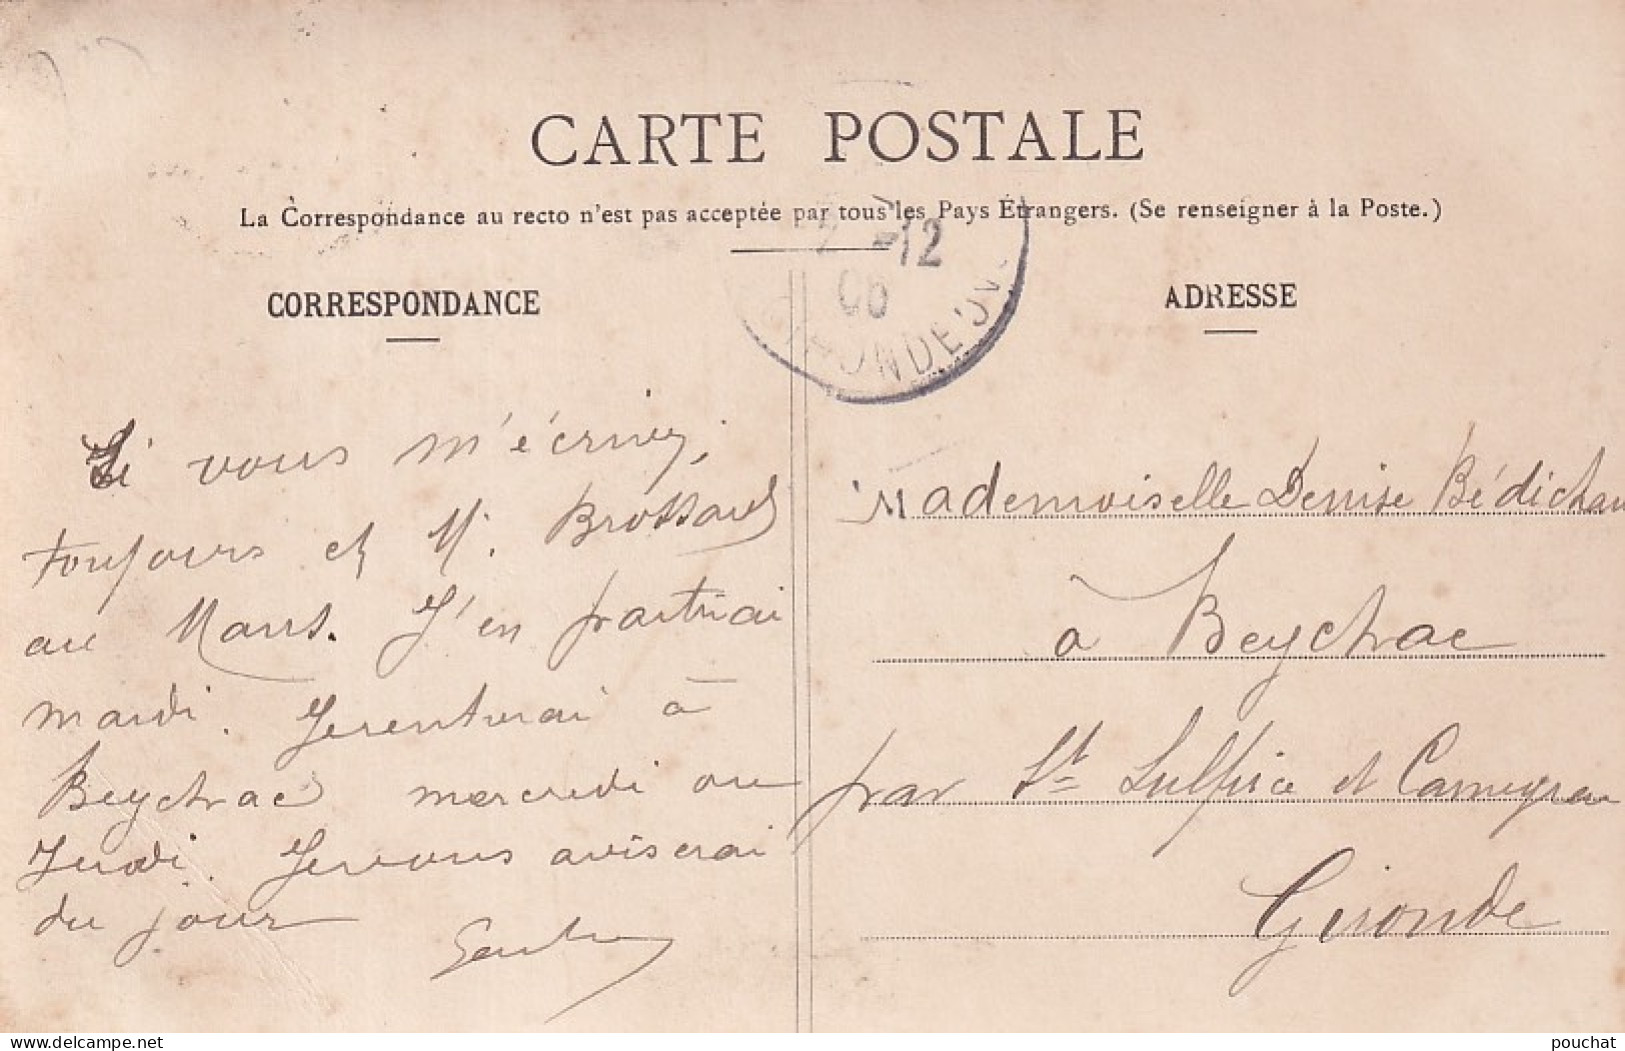 CARTE POSTALE
La Correspondance au recto n'est pas acceptée par tous les Pays Étrangers. (Se renseigner à la Poste.)
-12
06
GIRONDE
CORRESPONDANCE
Si vous m'écrivez,
toujours ch M. Brossard
au Mans. J'en partirai
mardi. Je rentrerai à
Beychac mercredi ou
Jeudi. Je vous aviserai
du jour
ADRESSE
Mademoiselle Denise Bédichau
à Beychac
par St Sulpice et Cameyrac
Gironde
delcampe.net
pouchat